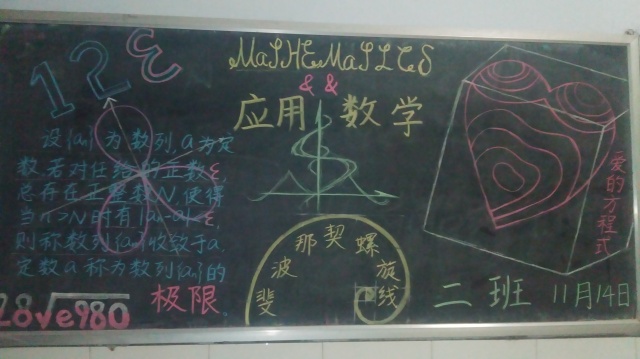 12ε
MaTHEMaTICS
& &
应用数学
设{aₙ}为数列,a为定
数,若对任给的正数ε,
总存在正整数N,使得
当n>N时有|aₙ-a|<ε,
则称数列{aₙ}收敛于a,
定数a称为数列{aₙ}的
极限
斐波那契螺旋线
爱的方程式
二班 11月14日